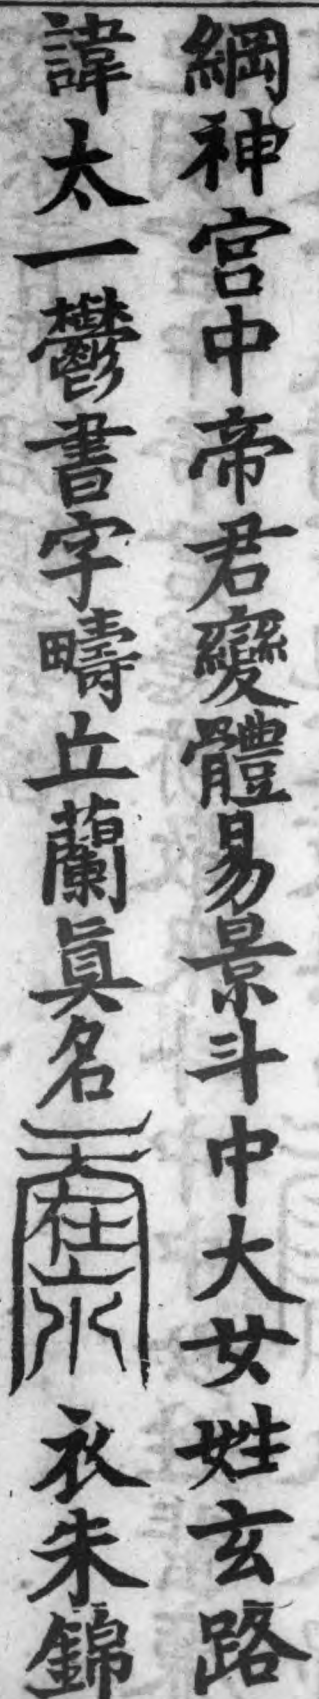 綱神宮中帝君變體易景斗中大女姓玄路
諱太一鬱書字疇丘蘭眞名衣朱錦